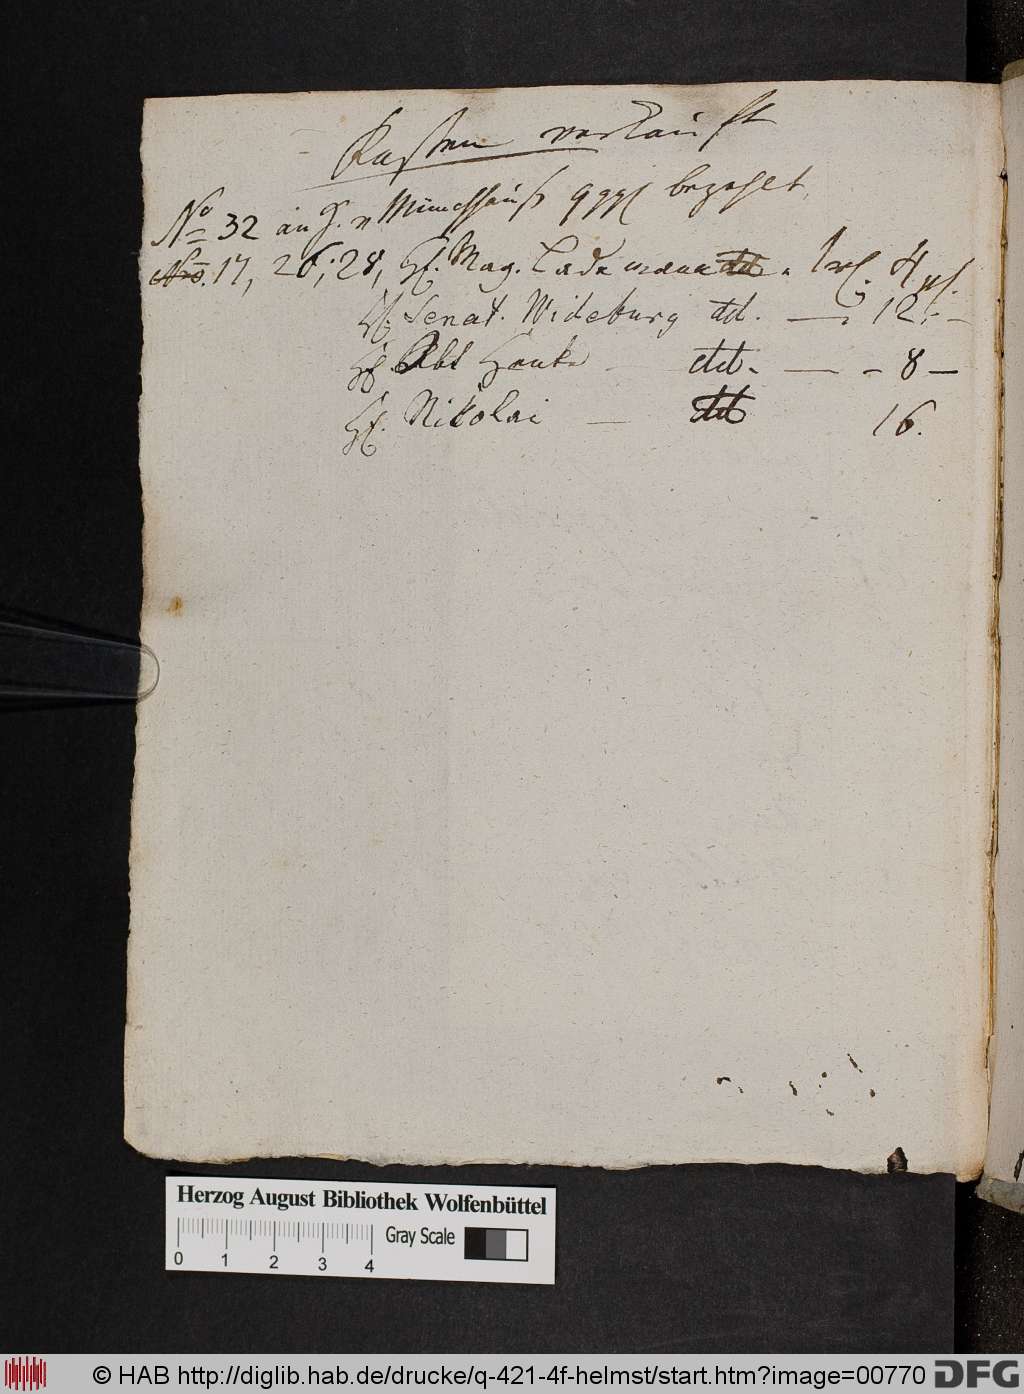 Kasten verkauft
No 32 an H. v Münchhauß 9 ggl bezahlt
No. 17, 26, 28, H. Mag. Lademann dd. 1 rl. 4 gl.
H. Senat. Wideburg dd. — 12. —
H. Abt Henke — dd. — - 8 —
H. Nikolai — dd 16.
Herzog August Bibliothek Wolfenbüttel
Gray Scale
0 1 2 3 4
© HAB http://diglib.hab.de/drucke/q-421-4f-helmst/start.htm?image=00770 DFG